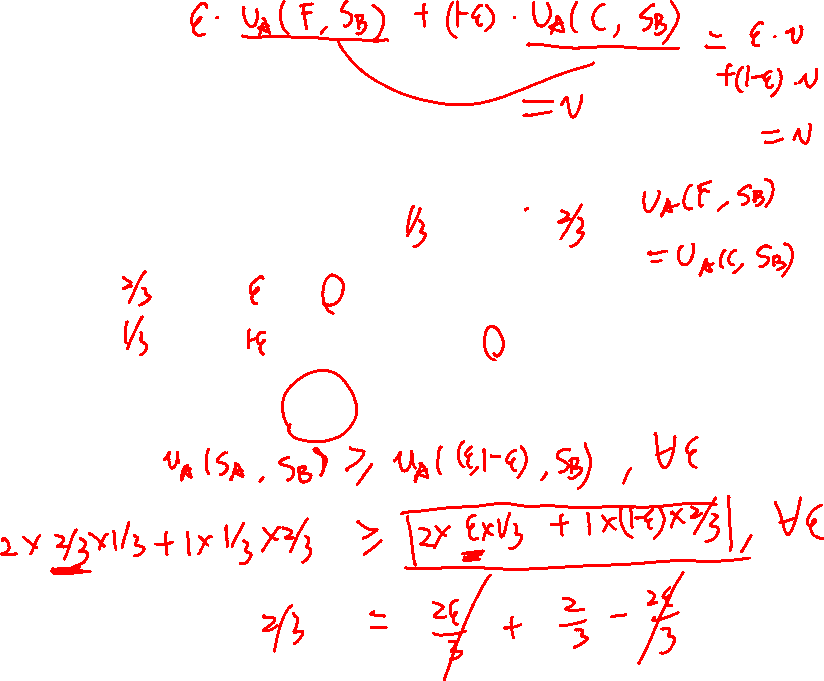 ε · U_A(F, S_B) + (1-ε) · U_A(C, S_B) = ε · v
+(1-ε) · v
= v
= v
1/3 2/3
U_A(F, S_B)
= U_A(C, S_B)
2/3 ε 0
1/3 1-ε 0
u_A(S_A, S_B) ≥ u_A((ε,1-ε), S_B) , ∀ε
2 × 2/3 × 1/3 + 1 × 1/3 × 2/3 ≥ 2 × ε × 1/3 + 1 × (1-ε) × 2/3 , ∀ε
2/3 = 2ε/3 + 2/3 - 2ε/3